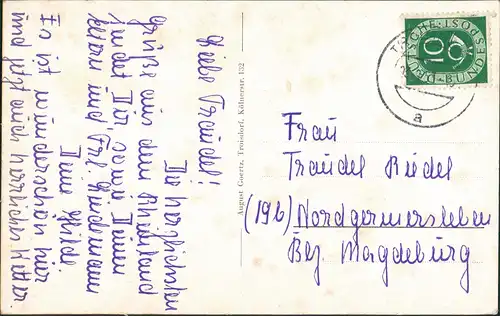 Liebe Traudel!
Die herzlichsten
Grüße aus dem Rheinland
sendet Dir, sowie Deinen
Eltern und Frl. Biedermann
Deine Hilde.
Es ist wunderschön hier
und jetzt auch herrliches Wetter.
August Goertz, Troisdorf, Kölnerstr. 132
DEUTSCHE BUNDESPOST
10
a
Frau
Traudel Riedel
(19b) Nordgermersleben
Bez. Magdeburg